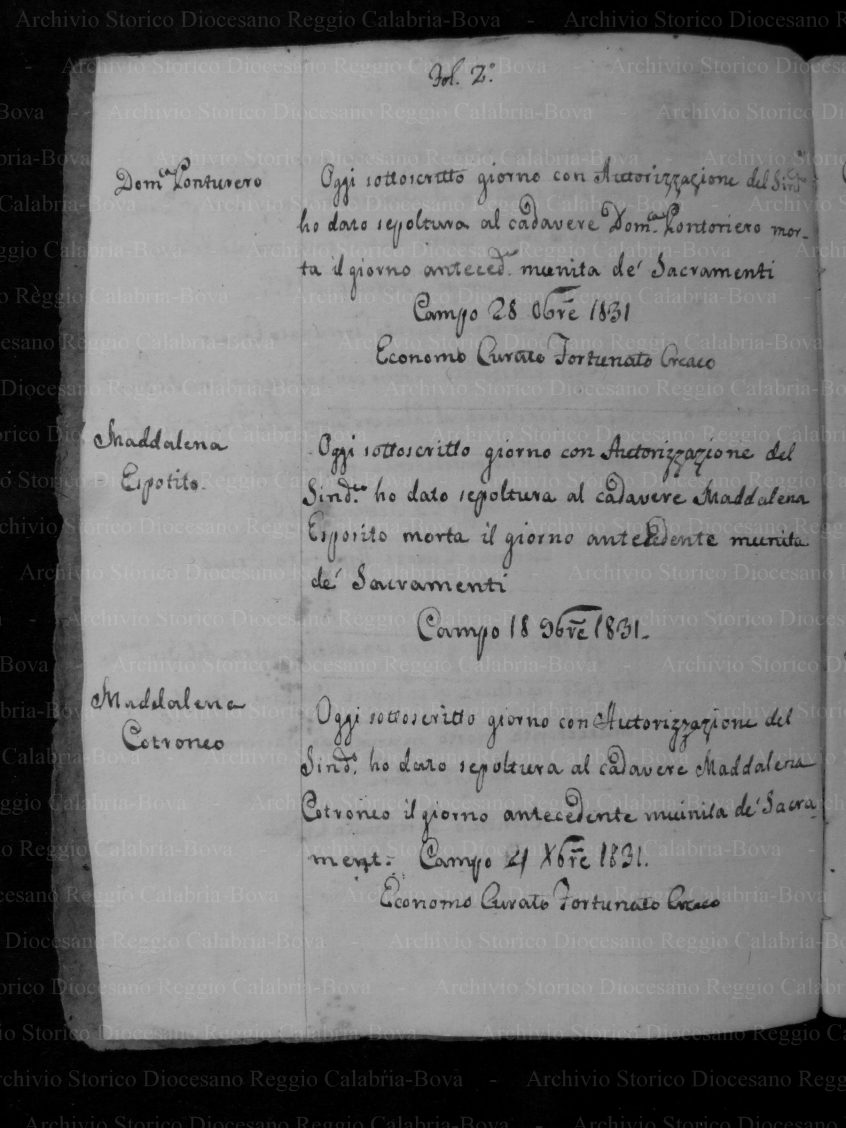 Fol. 2.°
Dom.ca Ponturero
Oggi sottoscritto giorno con Autorizzazione del Sind.co
ho dato sepoltura al cadavere Dom.ca Pontoriero mor-
ta il giorno anteced.e munita de' Sacramenti
Campo 28 8bre 1831
Economo Curato Fortunato
Maddalena
Espotito.
Oggi sottoscritto giorno con Autorizzazione del
Sind.co ho dato sepoltura al cadavere Maddalena
Esposito morta il giorno antecedente munita
de' Sacramenti
Campo 18 9bre 1831.
Maddalena
Cotroneo
Oggi sottoscritto giorno con Autorizzazione del
Sind.o ho dato sepoltura al cadavere Maddalena
Cotroneo il giorno antecedente munita de' Sacra-
ment. Campo 21 Xbre 1831.
Economo Curato Fortunato